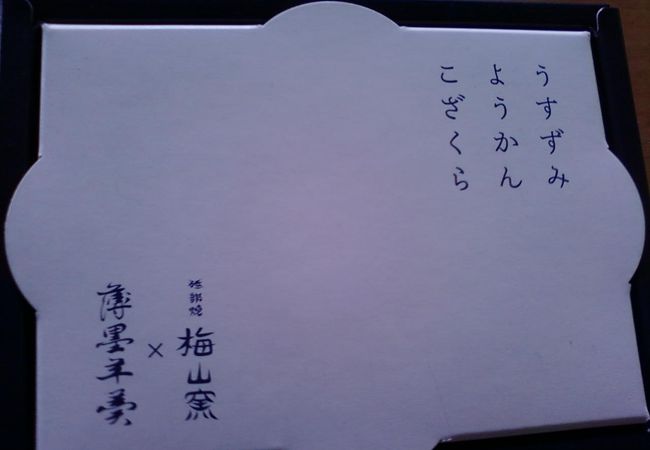 うすずみ
ようかん
こざくら
砥部焼
梅山窯
×
薄墨羊羹